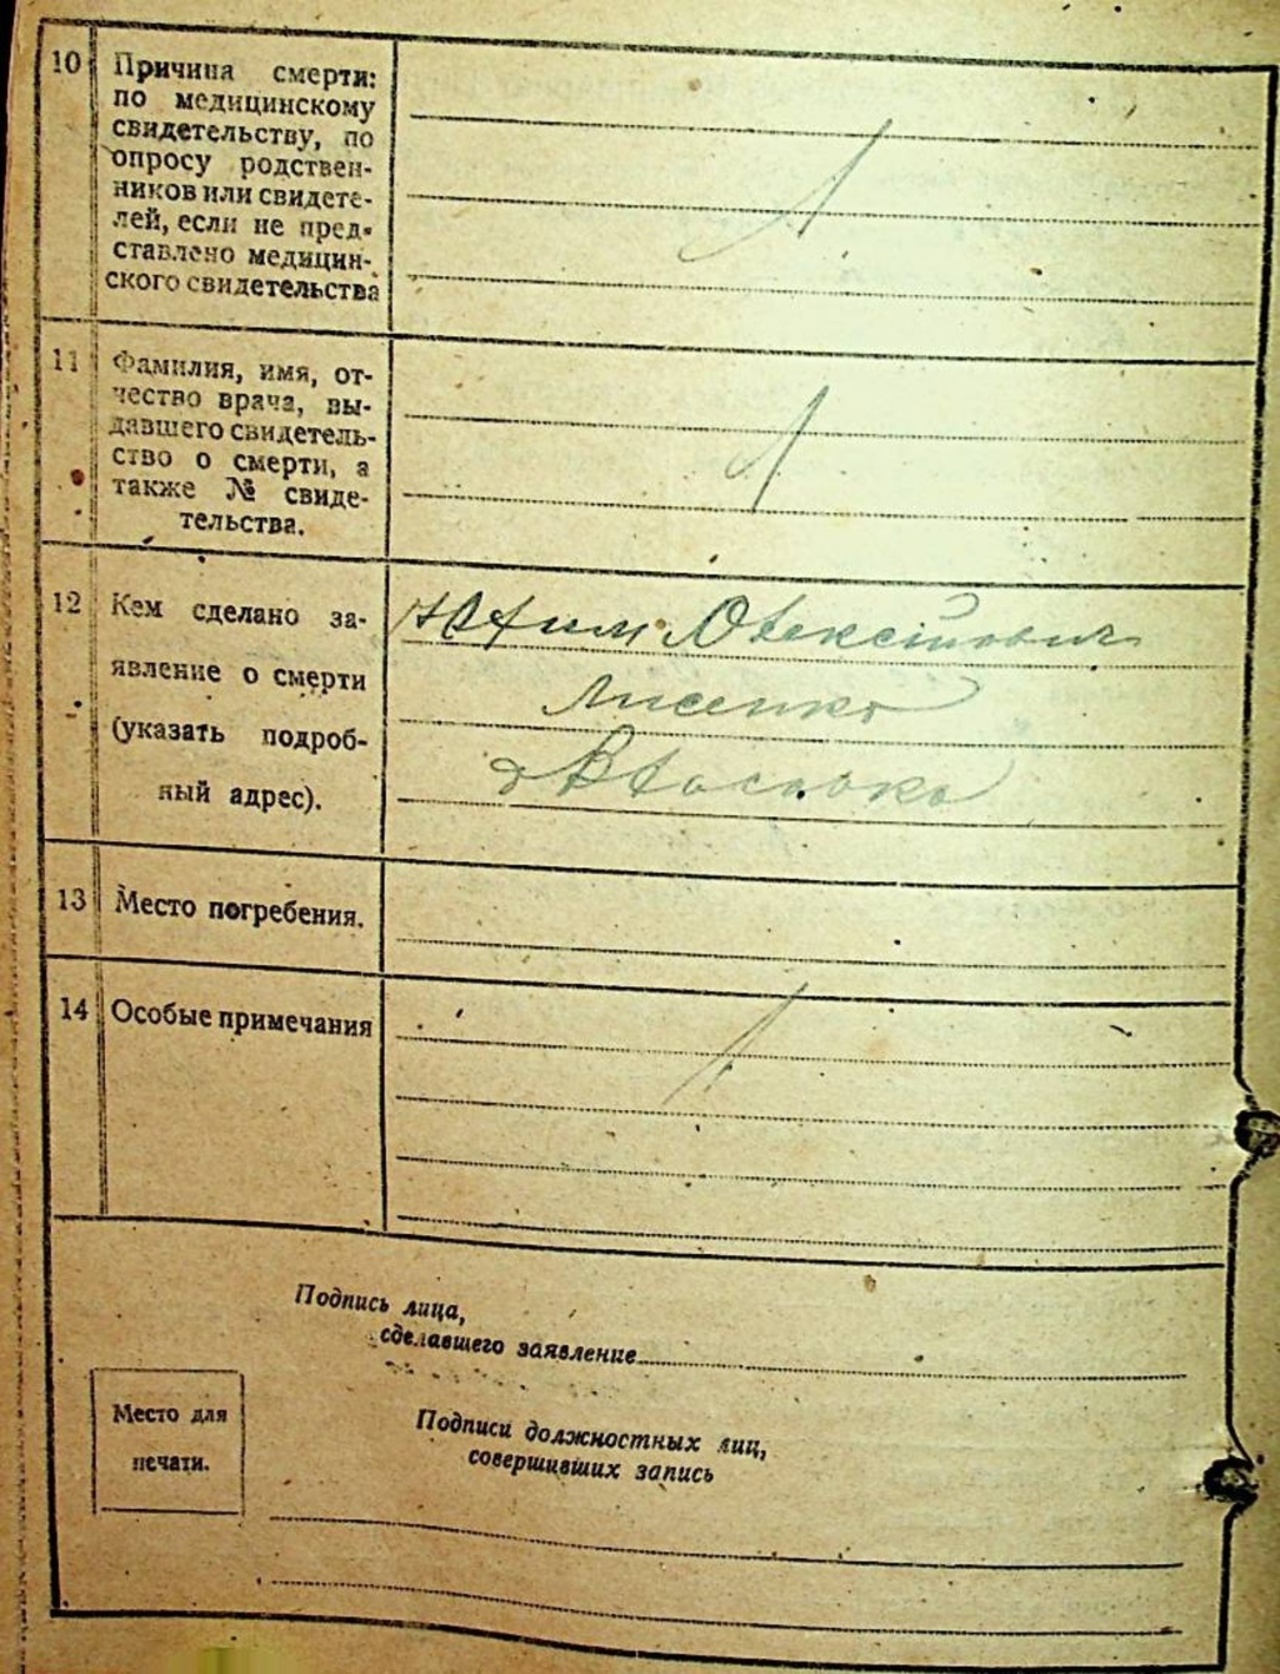 10 Причина смерти:
по медицинскому
свидетельству, по
опросу родствен-
ников или свидете-
лей, если не пред-
ставлено медицин-
ского свидетельства
11 Фамилия, имя, от-
чество врача, вы-
давшего свидетель-
ство о смерти, а
также № свиде-
тельства.
12 Кем сделано за-
явление о смерти
(указать подроб-
ный адрес).
Олексійович
Лисенко
Власовка
13 Место погребения.
14 Особые примечания
Подпись лица,
сделавшего заявление
Место для
печати.
Подписи должностных лиц,
совершивших запись